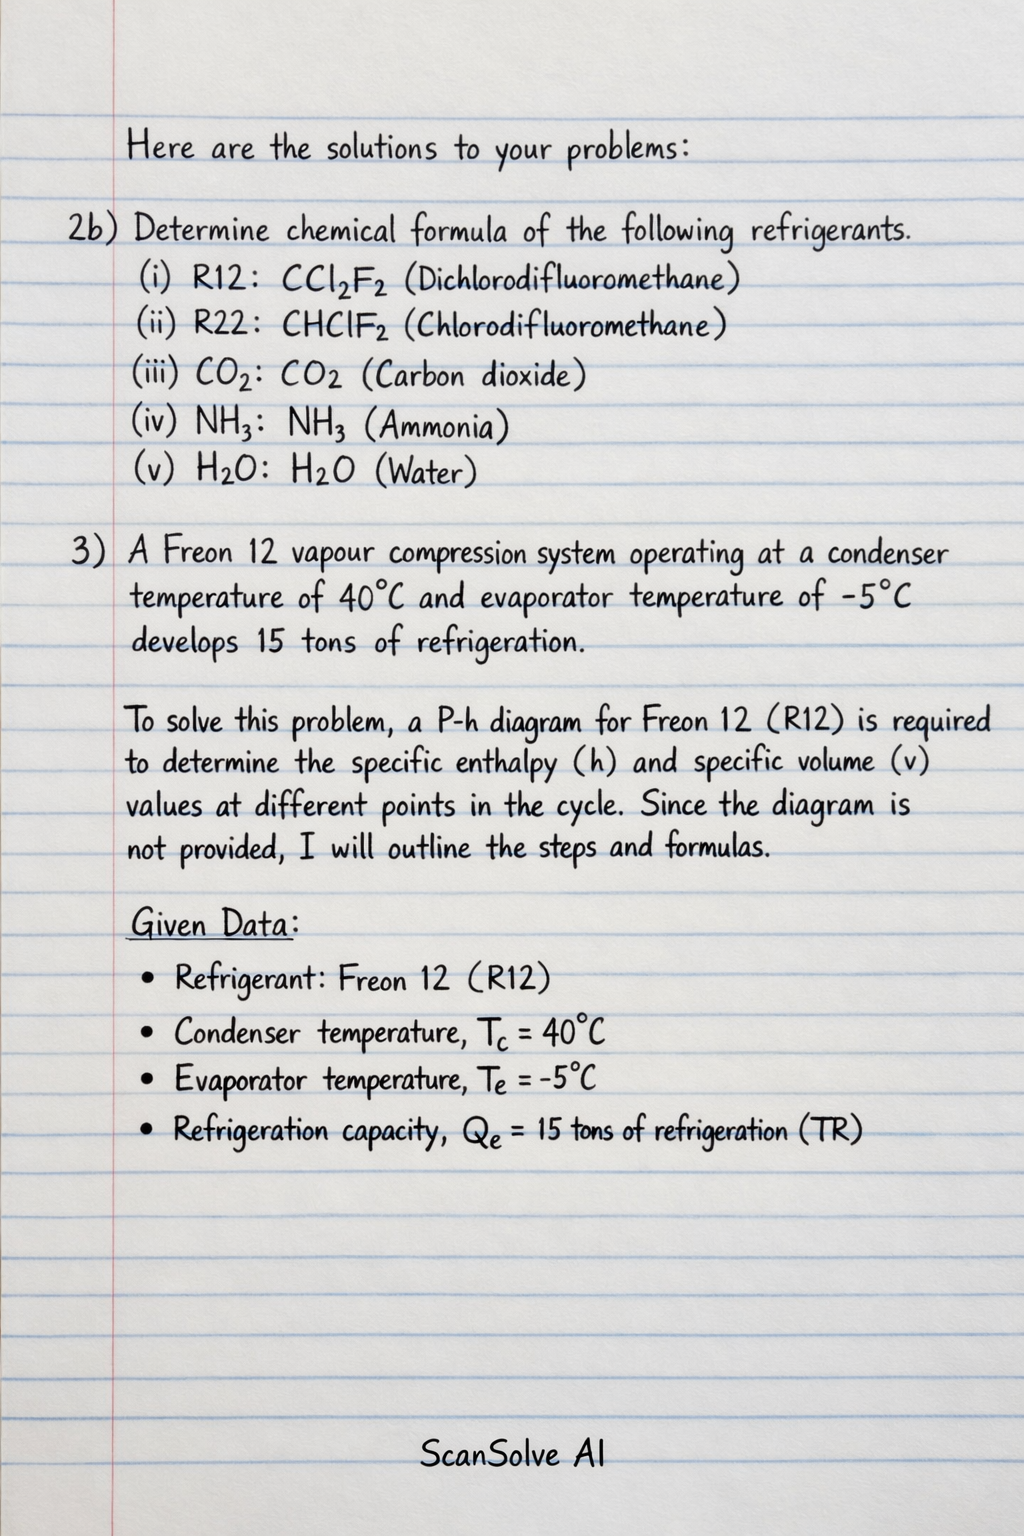 Here are the solutions to your problems:
2b) Determine chemical formula of the following refrigerants.
(i) R12: CCl₂F₂ (Dichlorodifluoromethane)
(ii) R22: CHClF₂ (Chlorodifluoromethane)
(iii) CO₂: CO₂ (Carbon dioxide)
(iv) NH₃: NH₃ (Ammonia)
(v) H₂O: H₂O (Water)
3) A Freon 12 vapour compression system operating at a condenser
temperature of 40°C and evaporator temperature of -5°C
develops 15 tons of refrigeration.
To solve this problem, a P-h diagram for Freon 12 (R12) is required
to determine the specific enthalpy (h) and specific volume (v)
values at different points in the cycle. Since the diagram is
not provided, I will outline the steps and formulas.
Given Data:
• Refrigerant: Freon 12 (R12)
• Condenser temperature, T_c = 40°C
• Evaporator temperature, Tₑ = -5°C
• Refrigeration capacity, Qₑ = 15 tons of refrigeration (TR)
ScanSolve AI